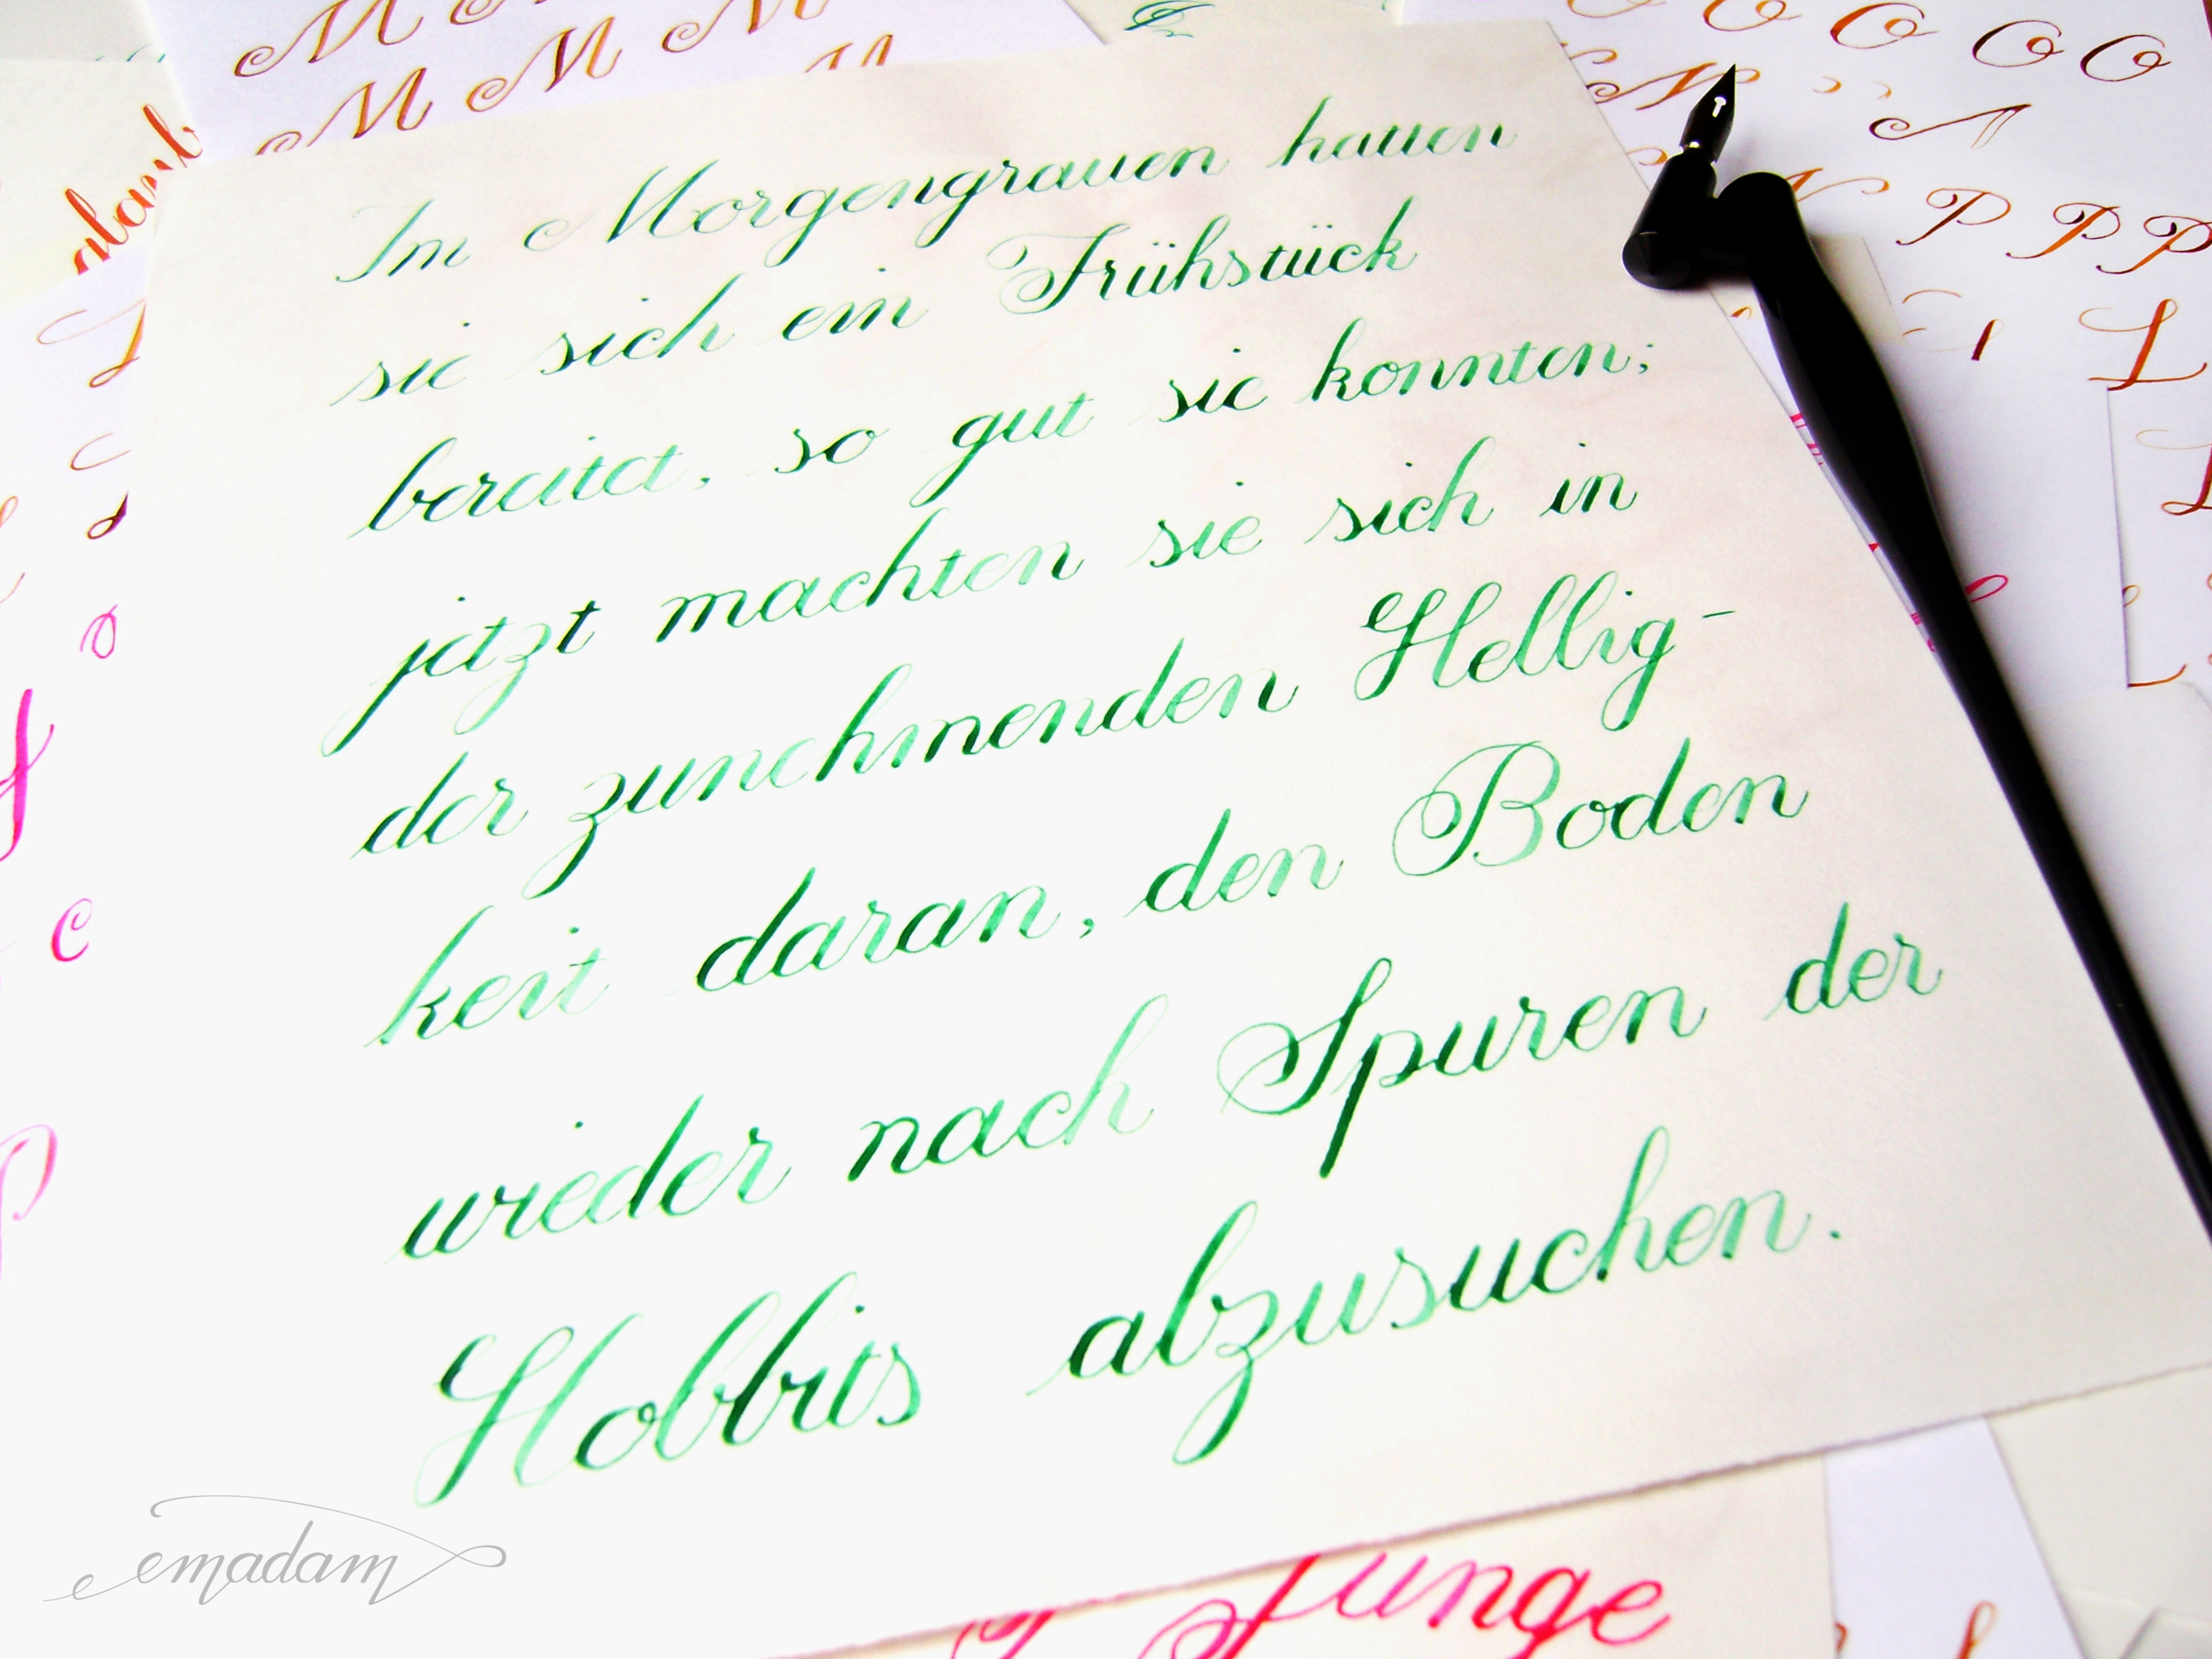 M M M
M M M M
O O O O O
N A
N P P P
L
Im Morgengrauen hatten
sie sich ein Frühstück
bereitet, so gut sie konnten;
jetzt machten sie sich in
der zunehmenden Hellig-
keit daran, den Boden
wieder nach Spuren der
Hobbits abzusuchen.
emadam
Junge